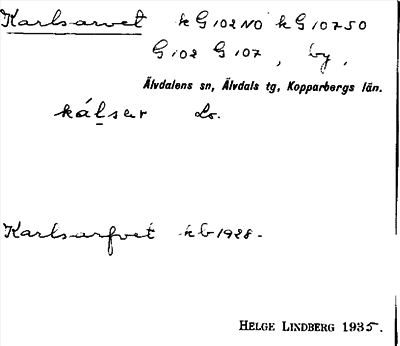 Karlsarvet k G 102 NO k G 107 SO
G 102 G 107, by.
Älvdalens sn, Älvdals tg, Kopparbergs län.
kálsar Ls.
Karlsarfvet k b 1928-
HELGE LINDBERG 1935.